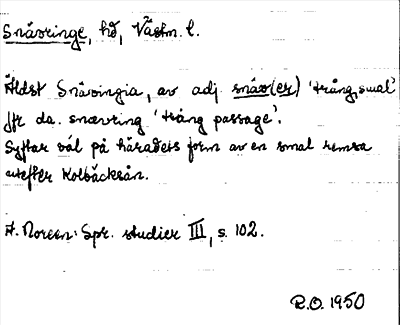 Snävringe, hd, Västm. l.
Äldst Snäuingia, av adj snäv(er) 'trång, smal'
jfr da. snævring 'trång passage'.
Syftar väl på häradets form av en smal remsa
utefter Kolbäcksån.
A. Noreen: Spr. studier III, s. 102.
R.O. 1950